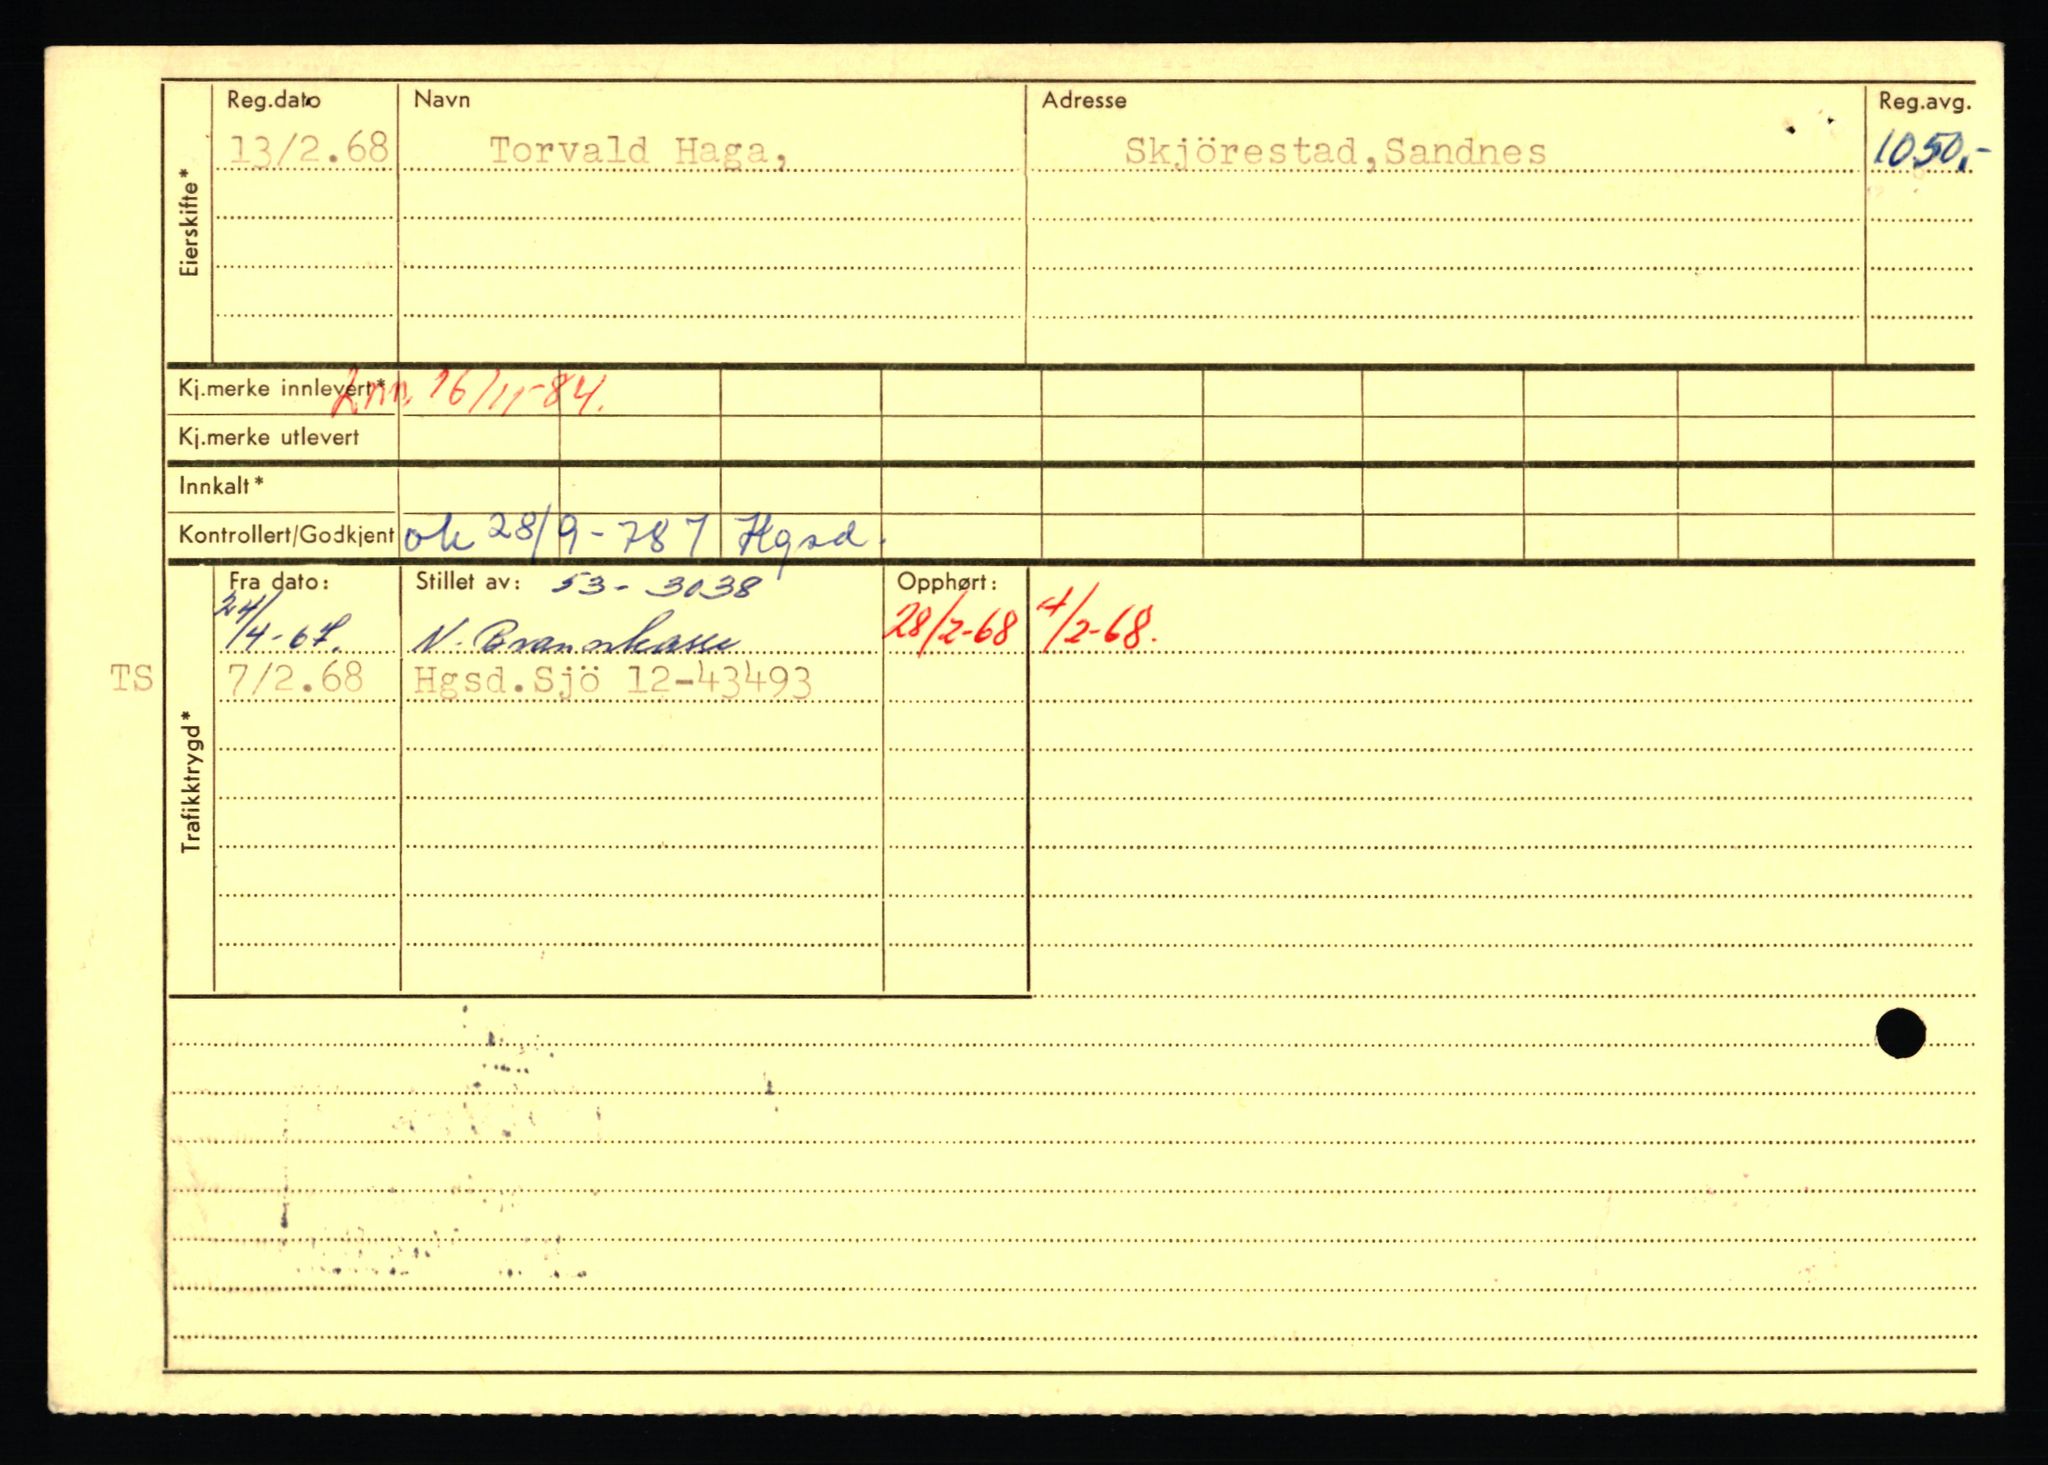 Reg.dato Navn Adresse Reg.avg.
13/2.68 Torvald Haga, Skjörestad,Sandnes 1050,-
Eierskifte*
Kj.merke innlevert* Inn. 16/11-84.
Kj.merke utlevert
Innkalt*
Kontrollert/Godkjent ok 28/9-78 Hgsd.
Fra dato: Stillet av: 53-3038 Opphørt:
24/4-67. N. Brannkasse 28/2-68 4/2-68.
TS 7/2.68 Hgsd.Sjö 12-43493
Trafikktrygd*